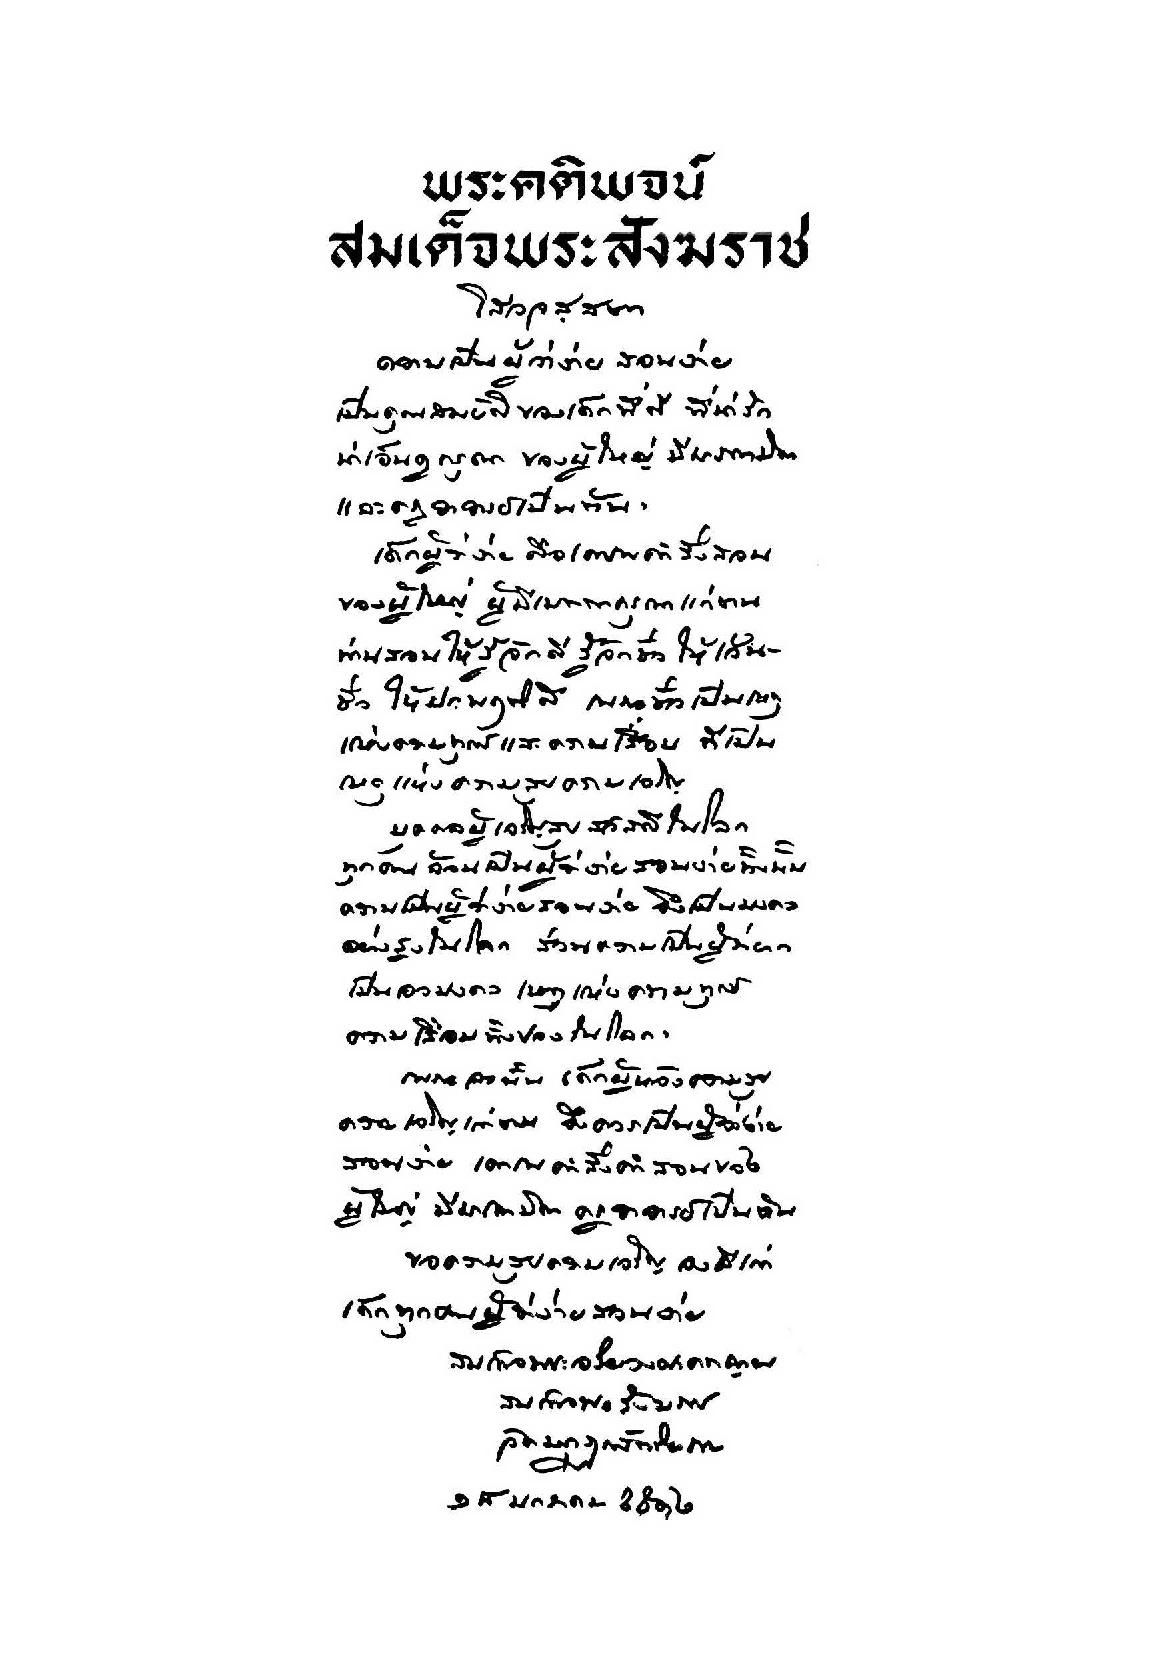 พระคติพจน์
สมเด็จพระสังฆราช
โสวจสฺสตา
ความเป็นผู้ว่าง่าย สอนง่าย
เป็นคุณสมบัติ ของเด็กที่ดี ที่น่ารัก
น่าเอ็นดู กรุณา ของผู้ใหญ่ มีมารดาบิดา
และครูอาจารย์เป็นต้น ฯ
เด็กผู้ว่าง่าย คือเคารพคำสั่งสอน
ของผู้ใหญ่ ผู้มีเมตตากรุณาแก่ตน
ท่านสอนให้รู้จักดี รู้จักชั่ว ให้เว้น-
ชั่ว ให้ประพฤติดี เพราะชั่วเป็นเหตุ
แห่งความทุกข์และความเสื่อม ดีเป็น
เหตุแห่งความสุขความเจริญ
บุคคลผู้เจริญสุขสวัสดีในโลก
ทุกคน ล้วนเป็นผู้ว่าง่าย สอนง่ายทั้งนั้น
ความเป็นผู้ว่าง่ายสอนง่าย จึงเป็นมงคล
อย่างสูงในโลก ส่วนความเป็นผู้ว่ายาก
เป็นอวมงคล เหตุแห่งความทุกข์
ความเสื่อม ทั้งปวงในโลก ฯ
เพราะฉะนั้น เด็กผู้หวังความสุข
ความเจริญแก่ตน จึงควรเป็นผู้ว่าง่าย
สอนง่าย เคารพคำสั่งสอนของ
ผู้ใหญ่ มีมารดาบิดา ครูอาจารย์เป็นต้น
ขอความสุขความเจริญ จงมีแก่
เด็กทุกคนผู้ว่าง่ายสอนง่าย
สมเด็จพระอริยวงศาคตญาณ
สมเด็จพระสังฆราช
๑ มกราคม